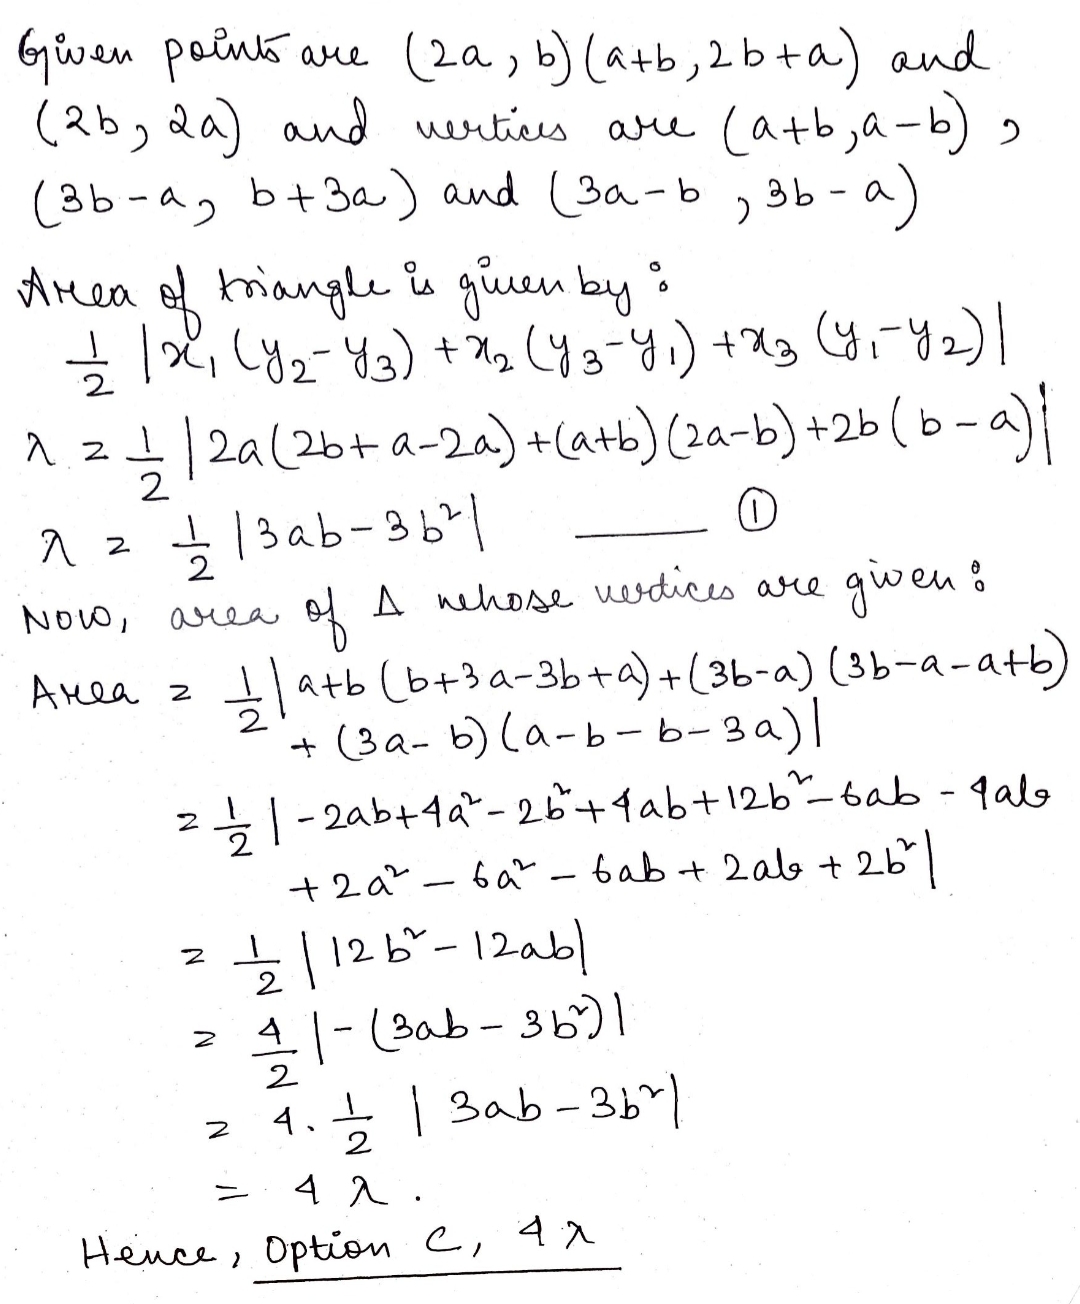 Given points are (2a, b) (a+b, 2b+a) and
(2b, 2a) and vertices are (a+b, a-b) ,
(3b-a, b+3a) and (3a-b , 3b-a)
Area of triangle is given by :
1/2 |x₁(y₂-y₃) + x₂(y₃-y₁) + x₃(y₁-y₂)|
λ = 1/2 |2a(2b+a-2a) + (a+b)(2a-b) + 2b(b-a)|
λ = 1/2 |3ab-3b²| —— ①
Now, area of Δ whose vertices are given :
Area = 1/2 |a+b (b+3a-3b+a) + (3b-a)(3b-a-a+b)
+ (3a-b)(a-b-b-3a)|
= 1/2 |-2ab+4a²-2b²+4ab+12b²-6ab-4ab
+2a²-6a²-6ab+2ab+2b²|
= 1/2 |12b²-12ab|
= 4/2 |-(3ab-3b²)|
= 4. 1/2 |3ab-3b²|
= 4λ.
Hence, Option C, 4λ